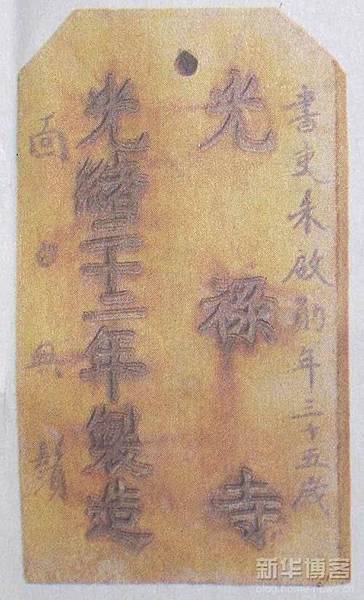 書吏朱啟勛年三十五歲
光祿寺
光緒二十二年製造
面白無鬚
新华博客